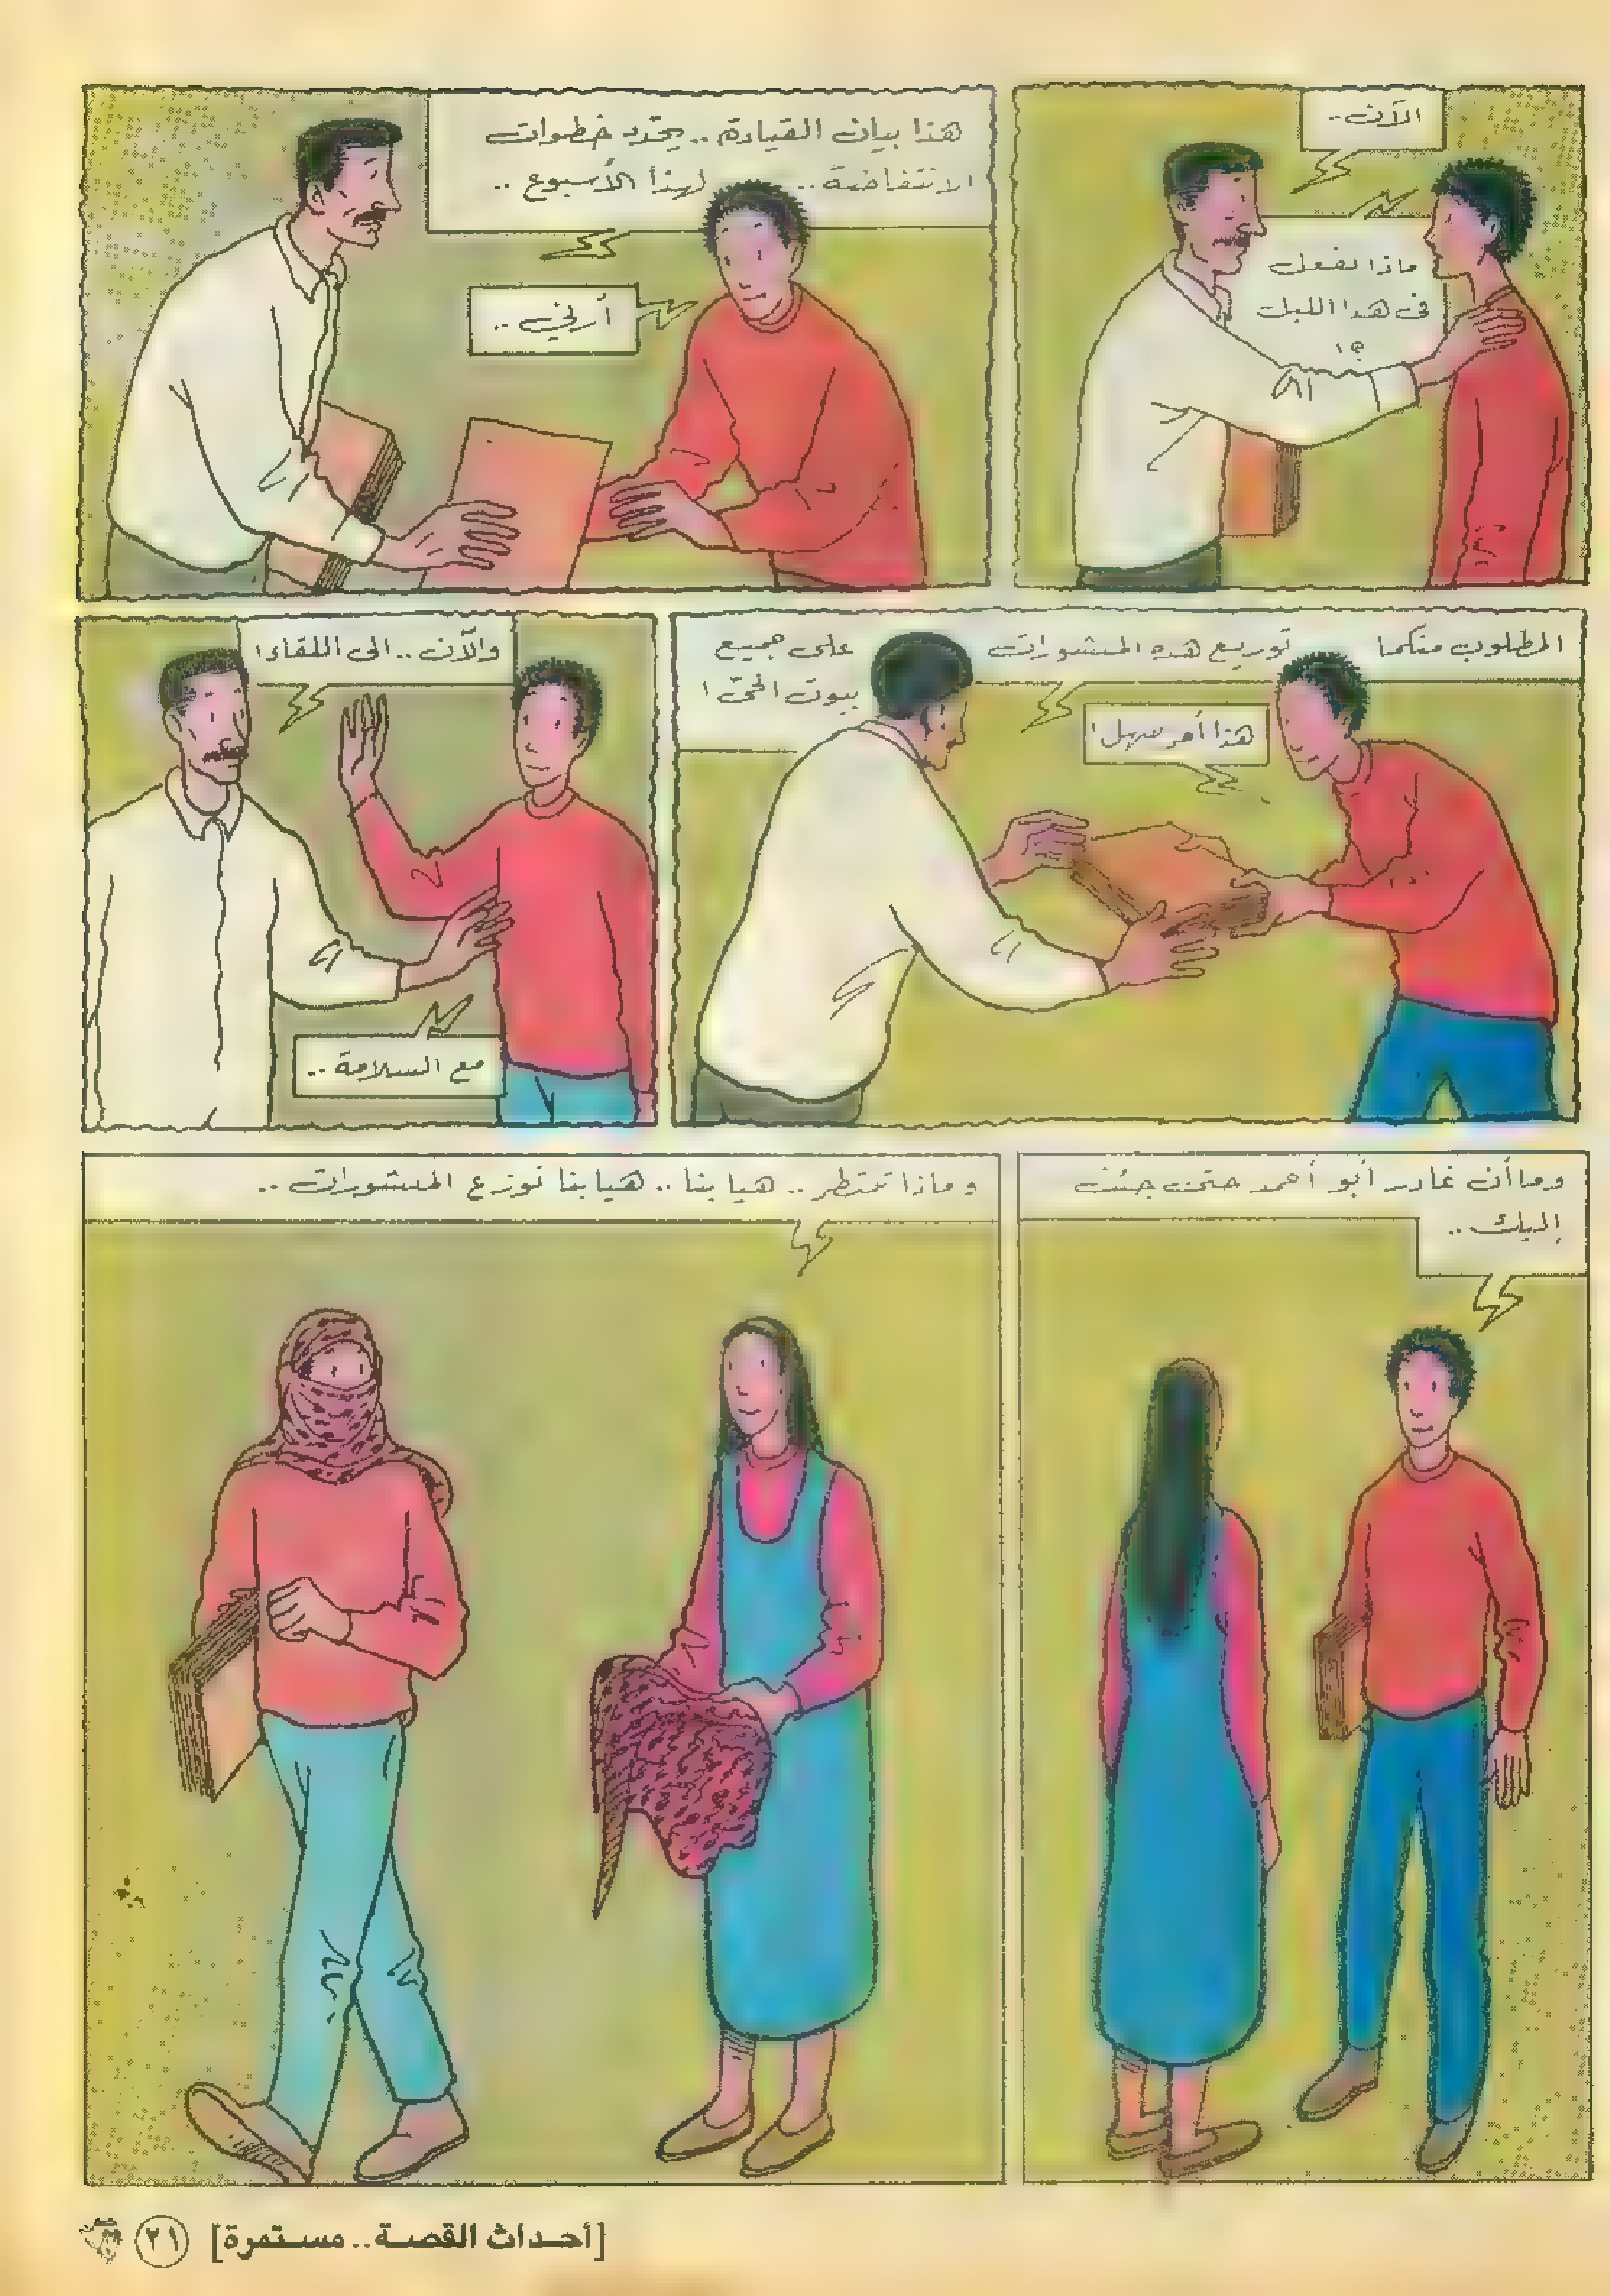 الآن..
ماذا نفعل
فى هذا الليل
؟!
هذا بيان القيادة.. يحدّد خطوات
الانتفاضة.. لهذا الأسبوع..
أرني..
المطلوب منكما توزيع هذه المنشورات على جميع
بيوت الحيّ!
هذا أمر سهل!
والآن.. الى اللقاء!
مع السلامة..
وما أن غادر أبو أحمد حتى جئت
إليك..
وماذا تنتظر.. هيا بنا.. هيا بنا نوزع المنشورات..
[أحداث القصة.. مستمرة]
٢١